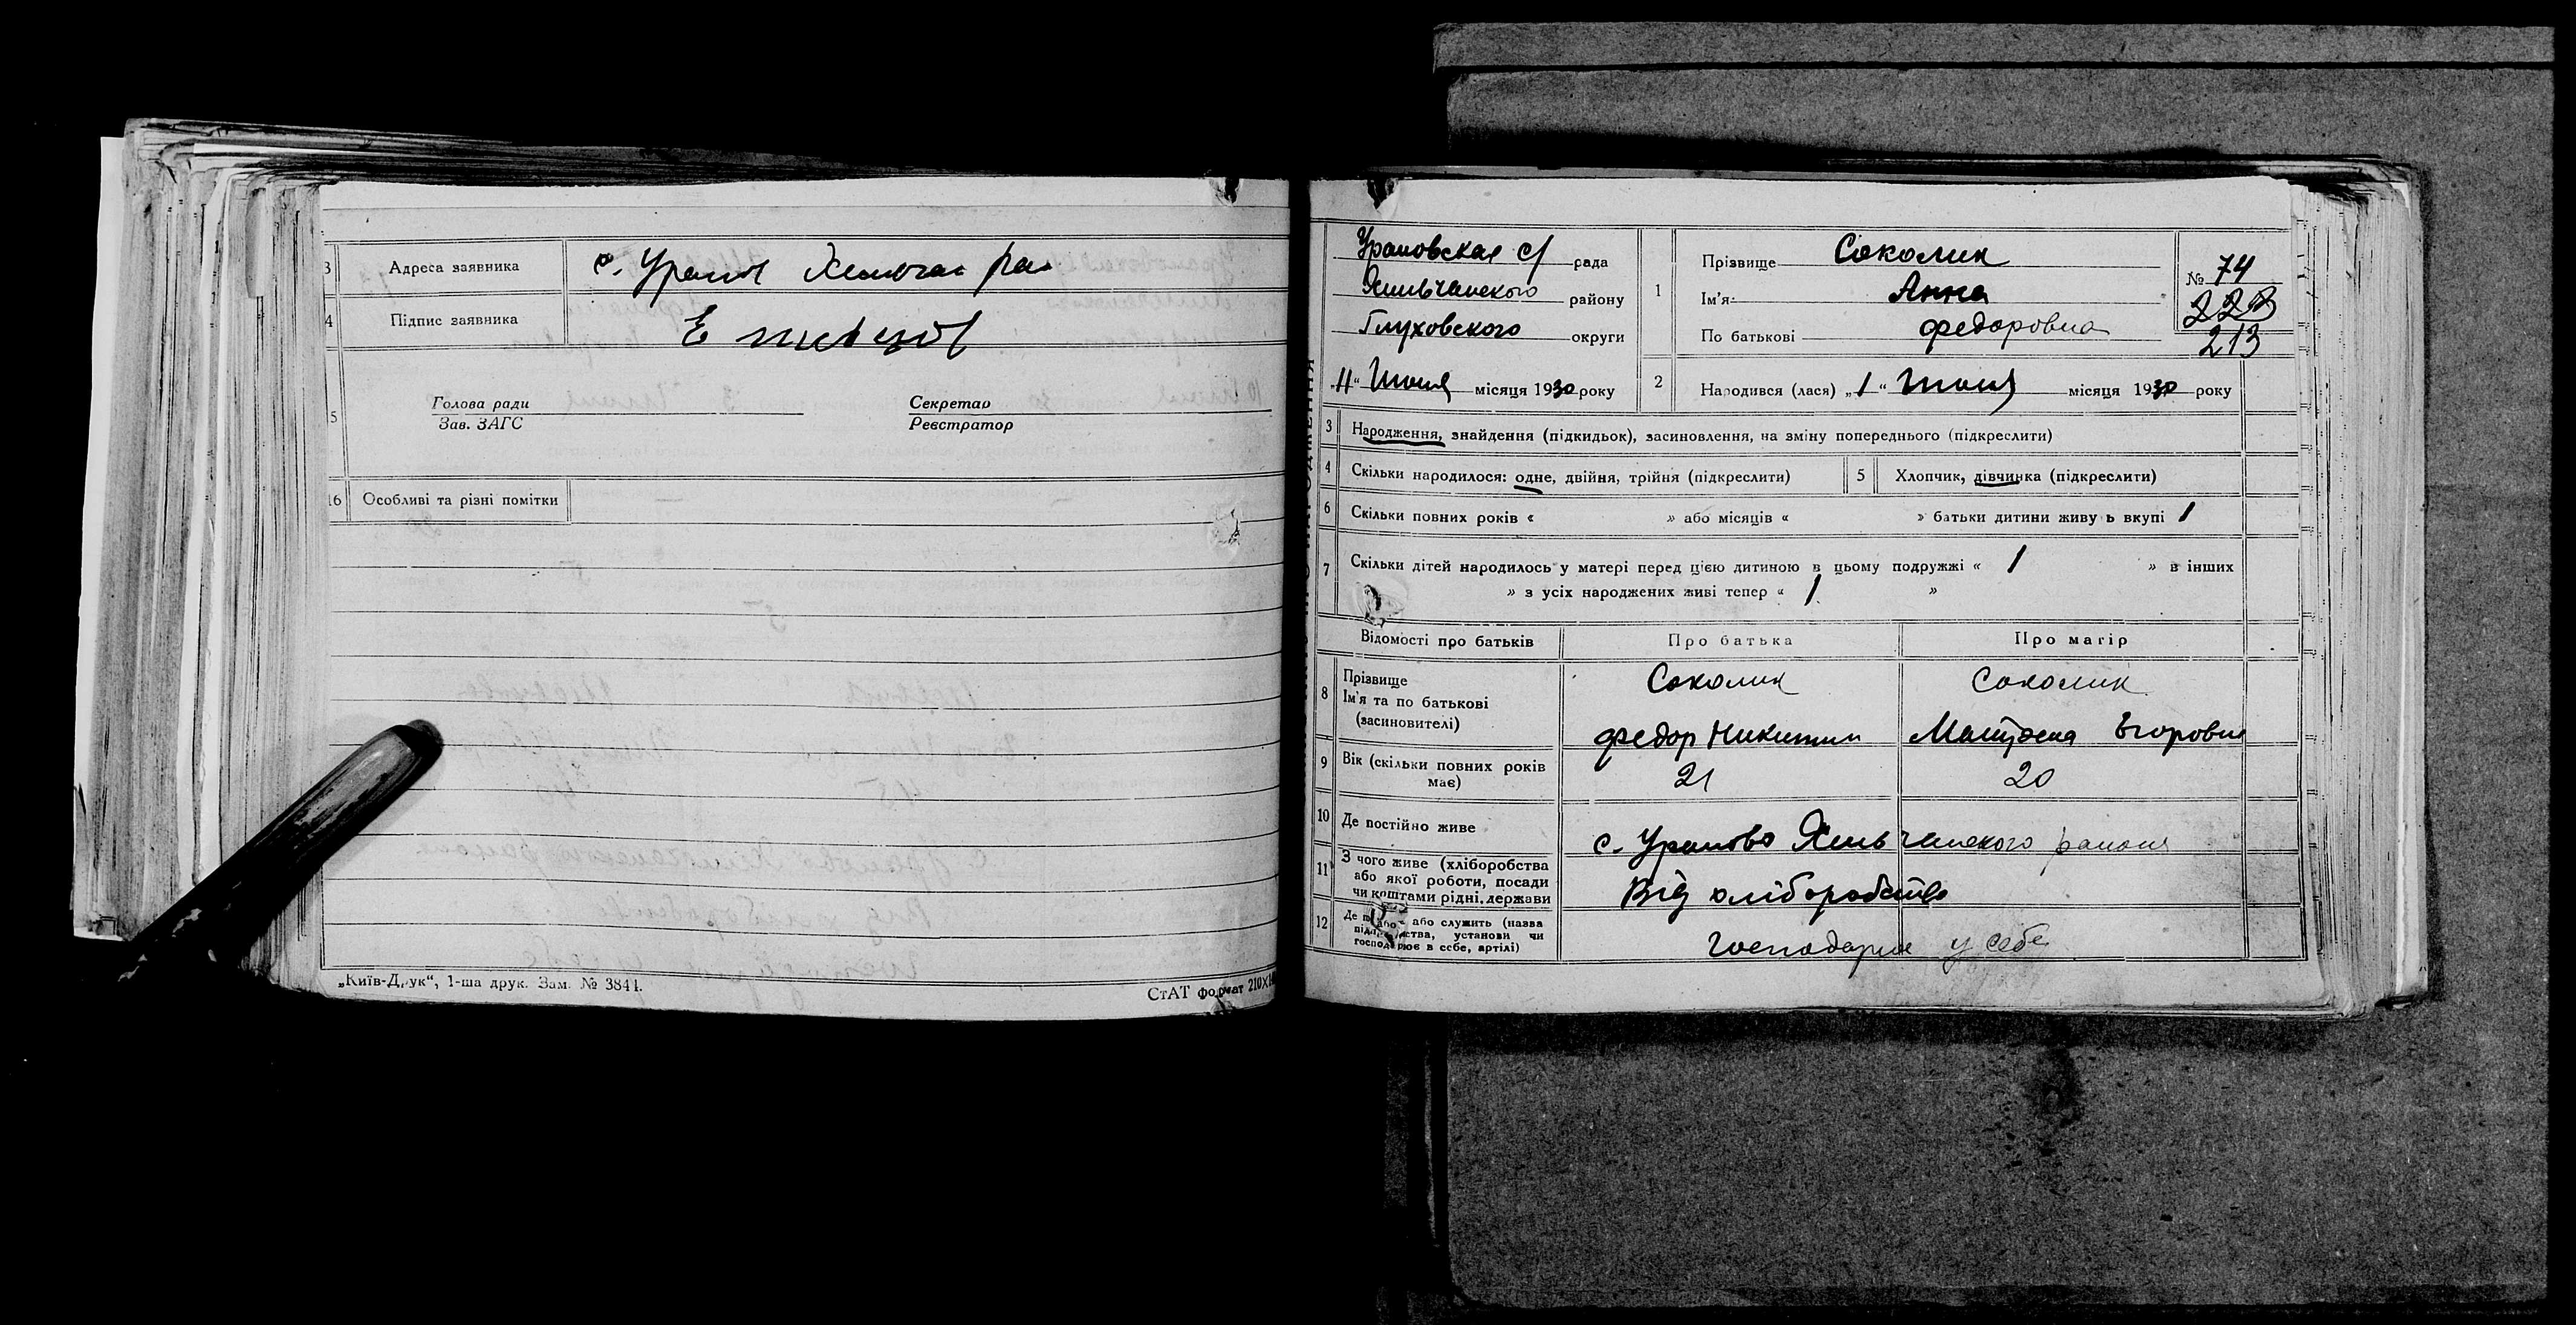 3 Адреса заявника с. Урапов
4 Підпис заявника
5 Голова ради Секретар
Зав. ЗАГС Реєстратор
16 Особливі та різні помітки
„Київ-Друк“, 1-ша друк. Зам. № 3844.
СтАТ формат 210X
Ураповская с/ рада
району
Глуховского округи
„11“ Июня місяця 1930 року
1 Прізвище Соколик
Ім'я Анна
По батькові Федоровна
№ 74
223
213
2 Народився (лася) „1“ Июня місяця 1930 року
3 Народження, знайдення (підкидьок), засиновлення, на зміну попереднього (підкреслити)
4 Скільки народилося: одне, двійня, трійня (підкреслити) 5 Хлопчик, дівчинка (підкреслити)
6 Скільки повних років « » або місяців « » батьки дитини живу ь вкупі 1
7 Скільки дітей народилось у матері перед цією дитиною в цьому подружжі « 1 » в інших
» з усіх народжених живі тепер « 1 »
Відомості про батьків Про батька Про матір
8 Прізвище Соколик Соколик
Ім'я та по батькові
(засиновителі)
Федор Никитич Егоровна
9 Вік (скільки повних років має) 21 20
10 Де постійно живе с. Урапово района
11 З чого живе (хліборобства
або якої роботи, посади
чи коштами рідні, держави
Від хліборобства
12 або служить (назва
установи чи
господарює в себе, артілі)
Господарює у себе